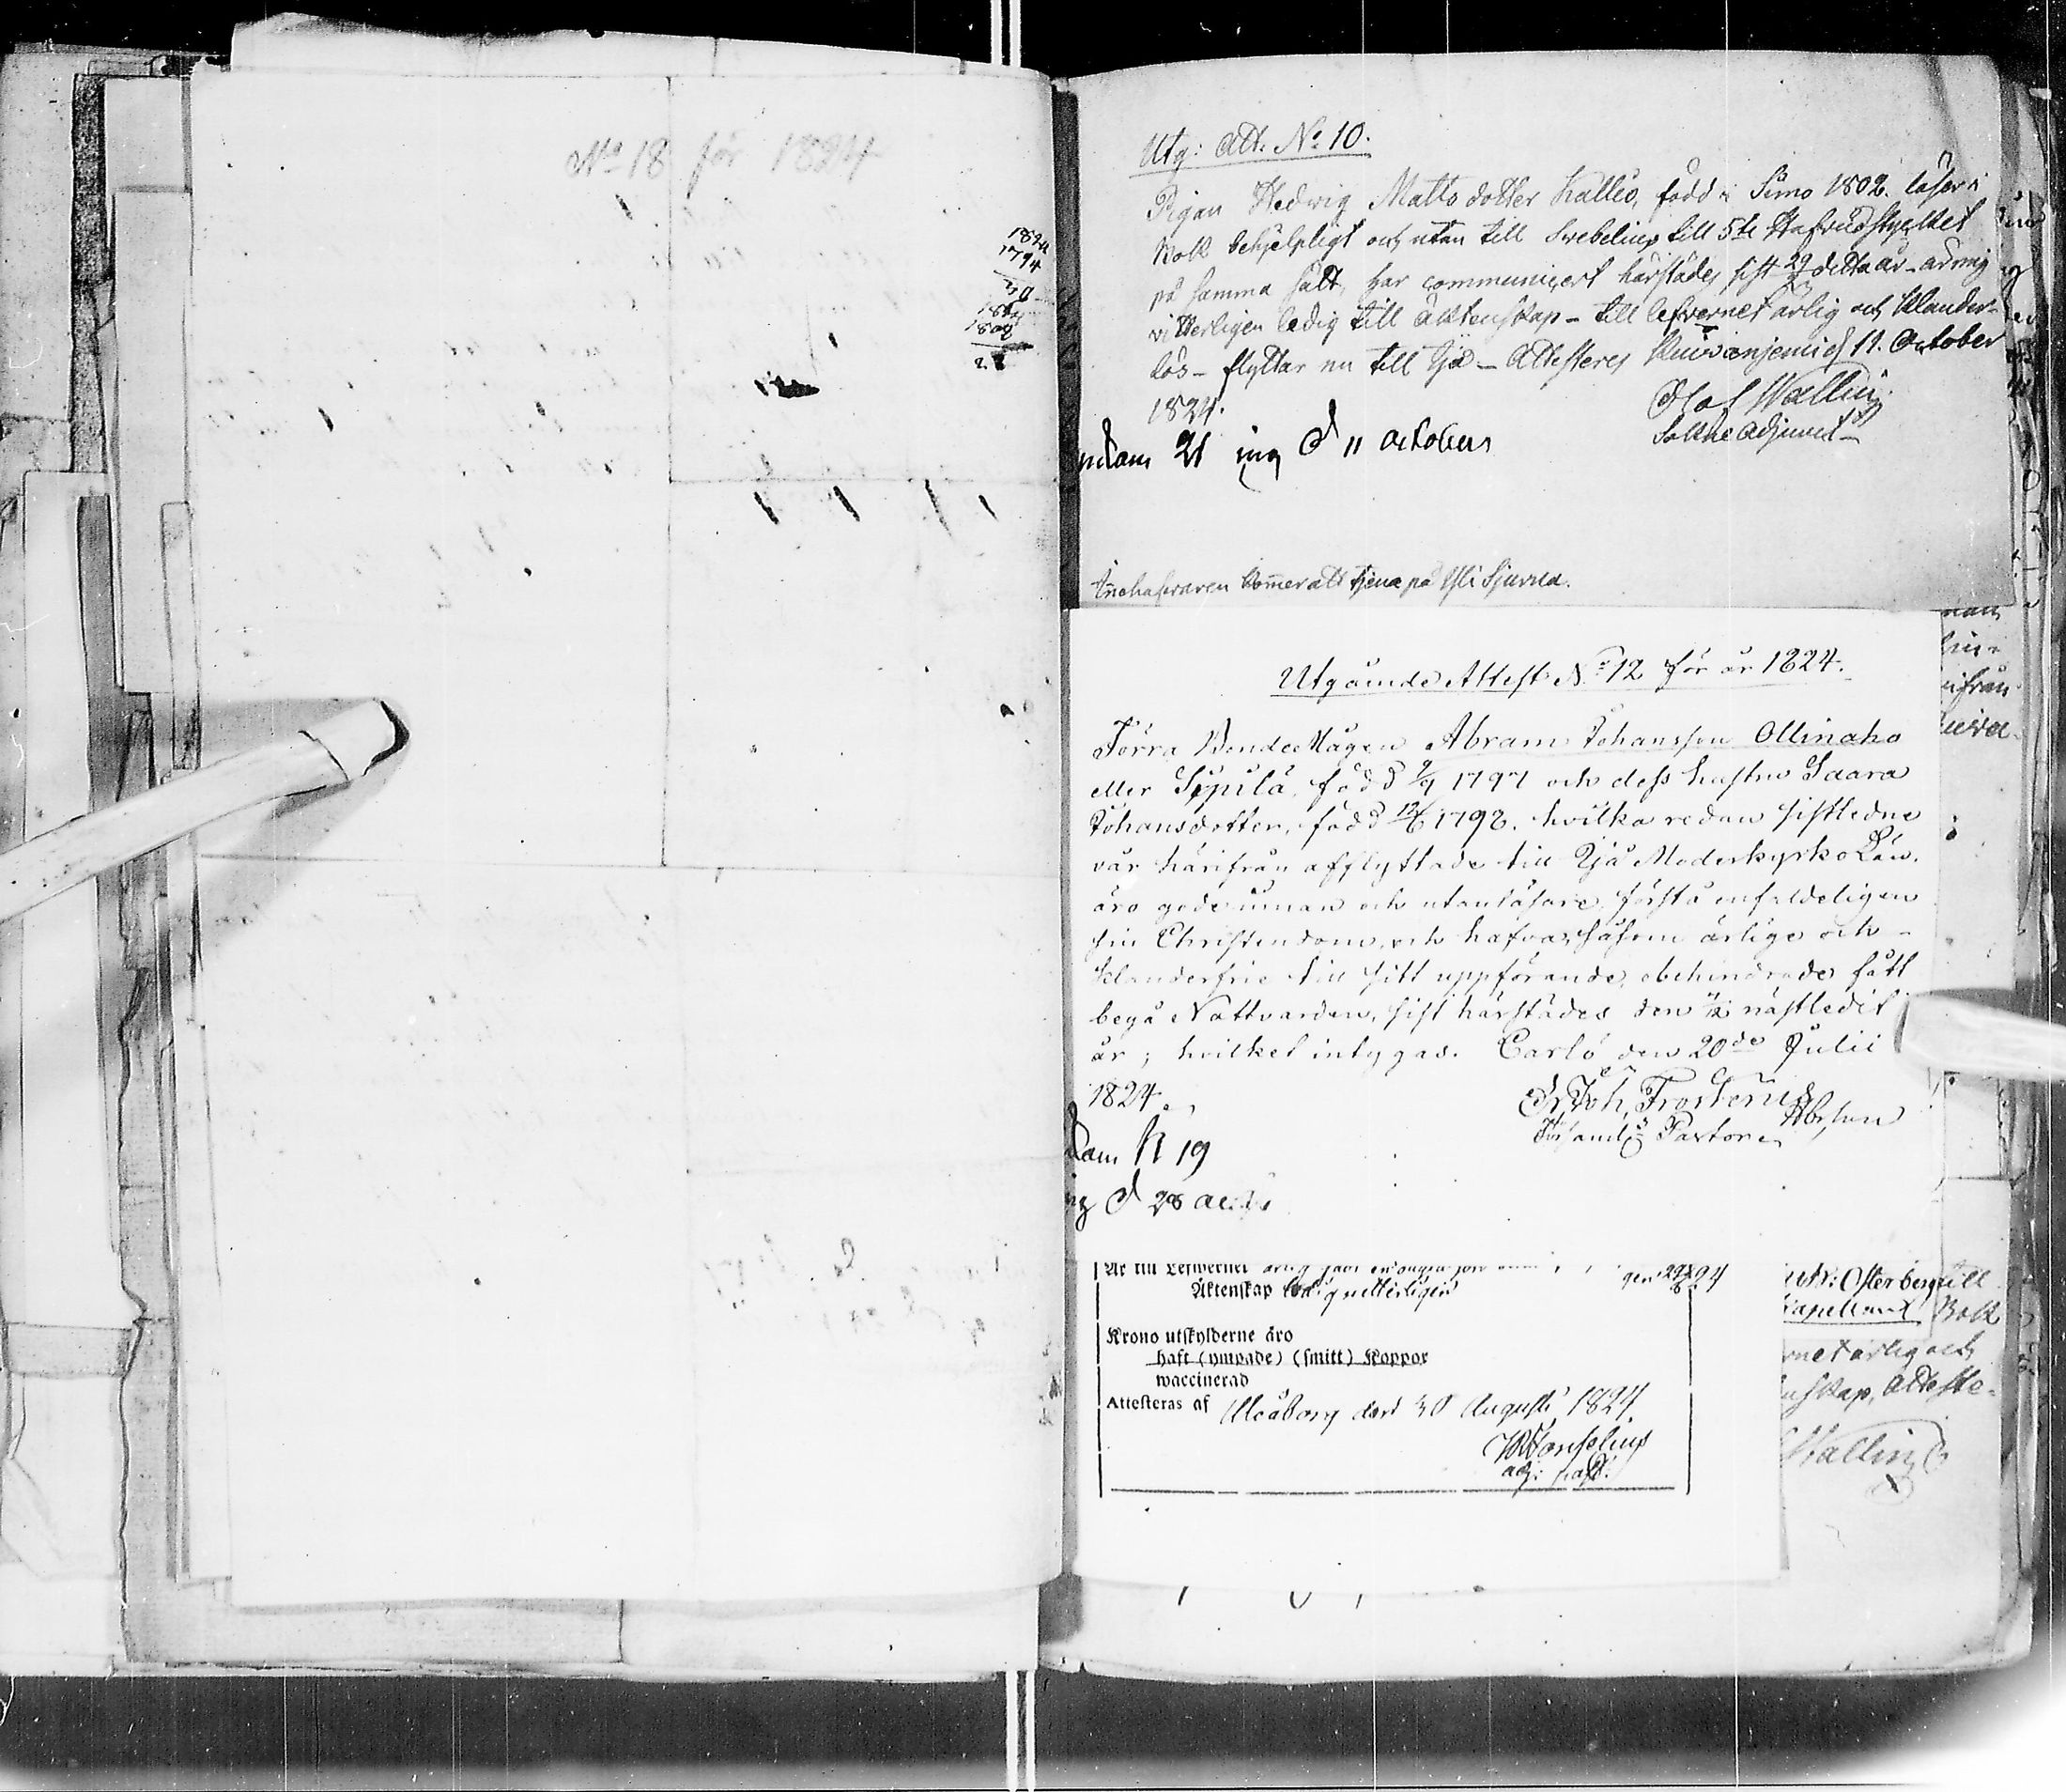 No 18 för 1824
1824
1794
30
1824
1802
22
Utg: Att. No 10.
Pigan Hedwig Matts dotter Kallio, född i Simo 1802. läser i
Bok behjelpligt och utan till Swebelius till 5te Hufvudstycket
på samma sätt, har communicert härstädes sist 29 detta år
vitterligen ledig till äktenskap - till lefvernet ärlig och klander-
lös - flyttar nu till Ijo - Attesteres Kuivaniemi d 11. October
1824.
Olof Wallin
Sockne Adjunct
ndam 21 ing d 11 october
Innehafvaren kommer att tjena på Yli Sjurua.
Utgående Attest No 12 för år 1824.
Förra Bonde Mågen Abram Johansson Ollinaho
eller Sipilä, född 9/9 1797 och dess hustru Saara
Johansdotter, född 12/6 1798. hvilka redan sistledne
vår härifrån afflyttade till Ijå Moderkyrko Län.
äro gode innan och utanläsare, förstå enfaldeligen
sin Christendom, och hafva såsom ärlige och -
klanderfrie till sitt uppförande, obehindrade fått
begå Nattvarden, sist härstädes den nästledit
år; hvilket intygas. Carlö den 20de Julii
1824.
Joh. Frosterus Abrson
Församl. Pastor
dam N 19
ng d 28 aug
Är till Lefwernet ärlig
Äktenskap ledig vetterligen
Krono utskylderne äro
haft (ympade) (smitt) Koppor
waccinerad
Attesteras af Uleåborg den 30 Augusti 1824.
adj: past:
Österberg till
Capellant Bok
rnet ärlig och
nskap, Atteste-
Wallin
nan
ifrån